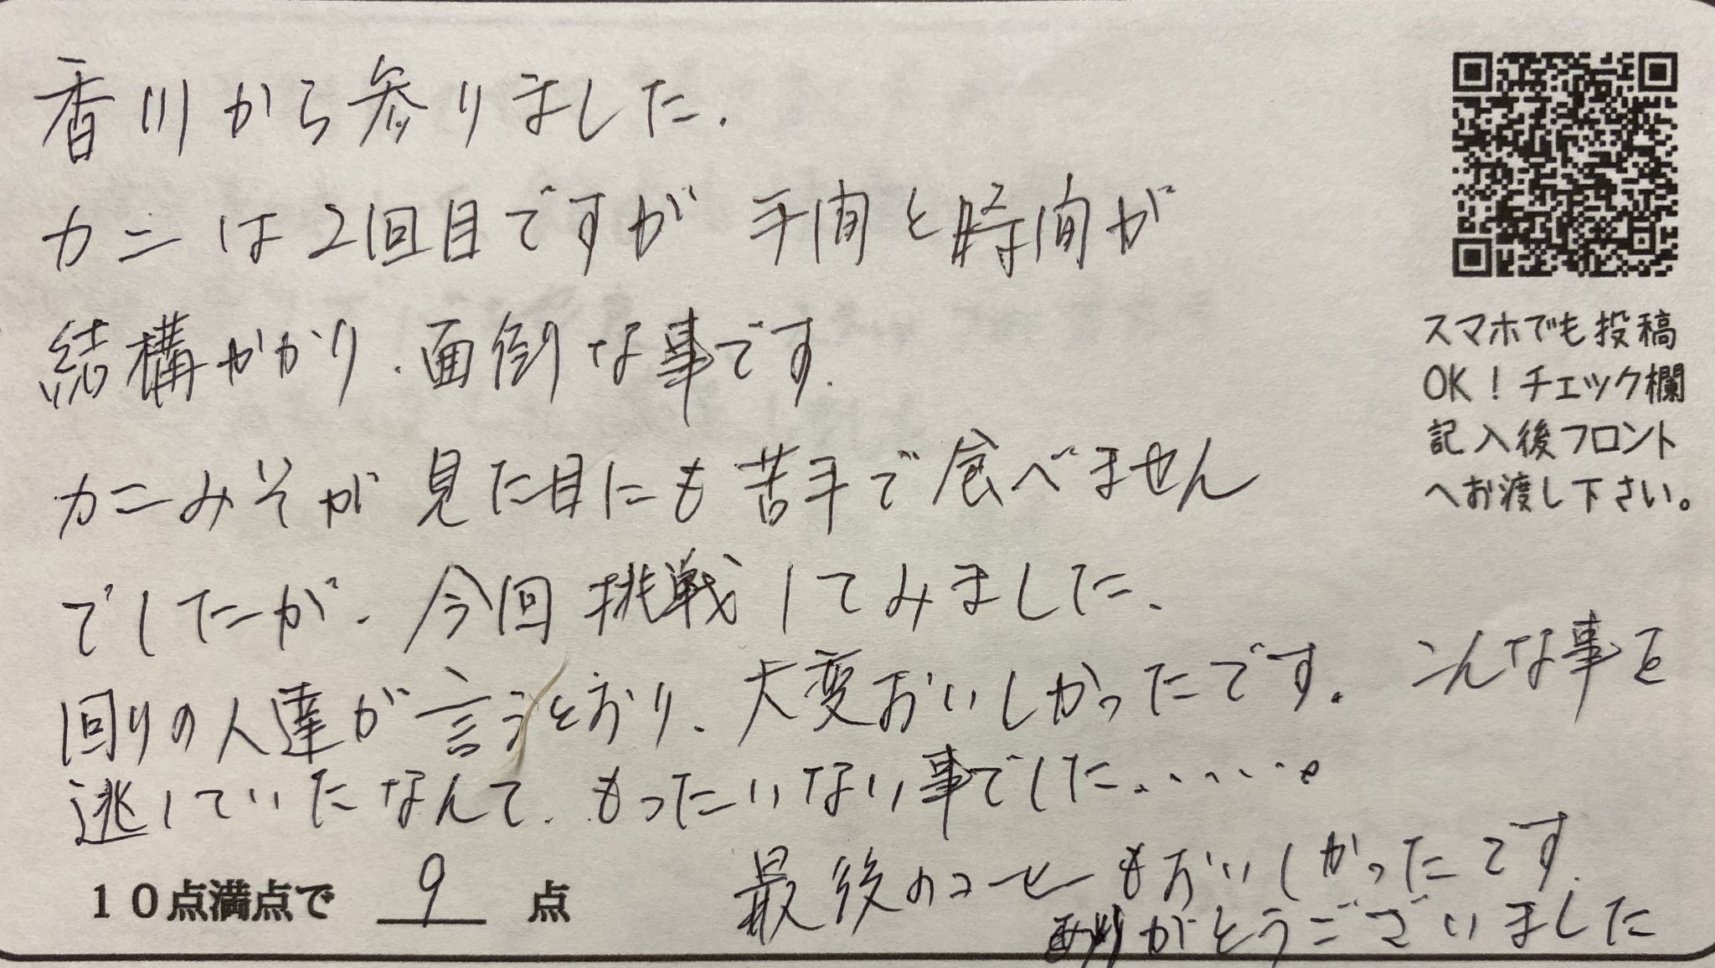 香川から参りました.
カニは2回目ですが 手間と時間が
結構かかり、面倒な事です.
カニみそが 見た目にも苦手で食べません
でしたが、今回挑戦してみました、
回りの人達が言うとおり、大変おいしかったです。こんな事を
逃していたなんて、もったいない事でした、・・・・・。
最後のコーヒーもおいしかったです.
ありがとうございました
10点満点で 9 点
スマホでも投稿
OK!チェック欄
記入後フロント
へお渡し下さい。